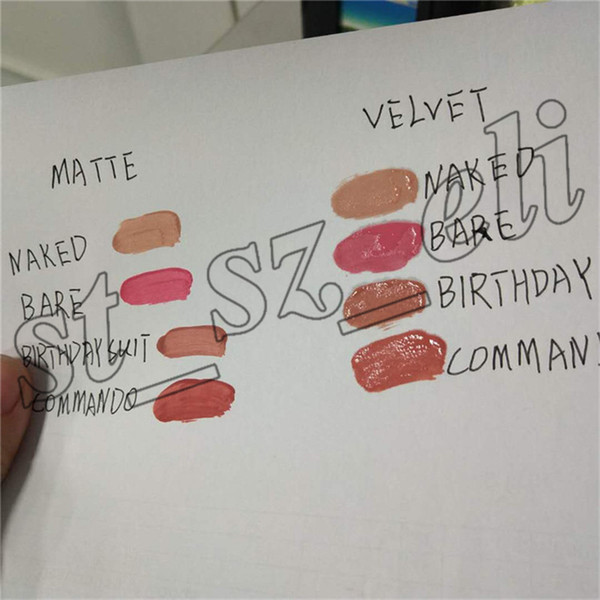 MATTE
NAKED
BARE
BIRTHDAY SUIT
COMMANDO
VELVET
NAKED
BARE
BIRTHDAY
COMMAND
st_sz_eli